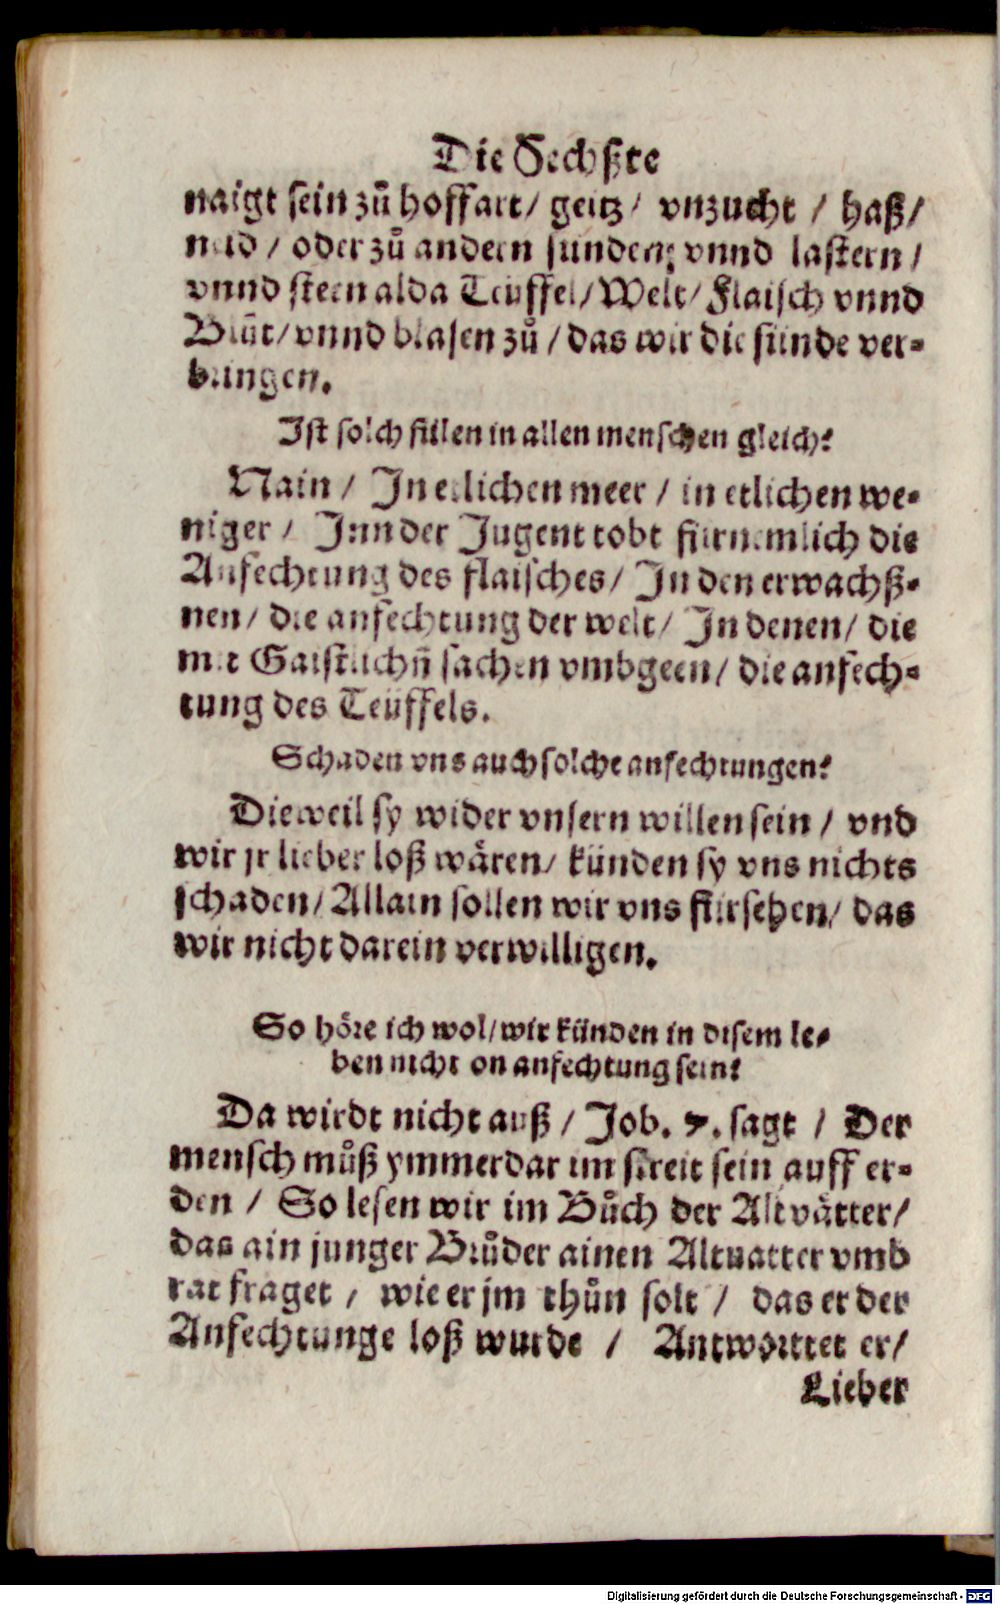 Die Sechßte
naigt sein zů hoffart / geitz / vnzucht / haß /
neid / oder zů andern sünden vnnd lastern /
vnnd steen alda Teüffel / Welt / Flaisch vnnd
Blůt / vnnd blasen zů / das wir die sünde ver-
bringen.
Ist solch füllen in allen menschen gleich?
Nain / In etlichen meer / in etlichen we-
niger / Inn der Jugent tobt fürnemlich die
Anfechtung des flaisches / In den erwachß-
nen / die anfechtung der welt / In denen / die
mit Gaistlichn̄ sachen vmbgeen / die anfech-
tung des Teüffels.
Schaden vns auch solche anfechtungen?
Dieweil sy wider vnsern willen sein / vnd
wir jr lieber loß wären / künden sy vns nichts
schaden / Allain sollen wir vns fürsehen / das
wir nicht darein verwilligen.
So höre ich wol / wir künden in disem le-
ben nicht on anfechtung sein?
Da wirdt nicht auß / Job. 7. sagt / Der
mensch můß ymmerdar im streit sein auff er-
den / So lesen wir im Bůch der Altvätter /
das ain junger Brůder ainen Altuatter vmb
rat fraget / wie er jm thůn solt / das er der
Anfechtunge loß wurde / Antworttet er /
Lieber
Digitalisierung gefördert durch die Deutsche Forschungsgemeinschaft - DFG